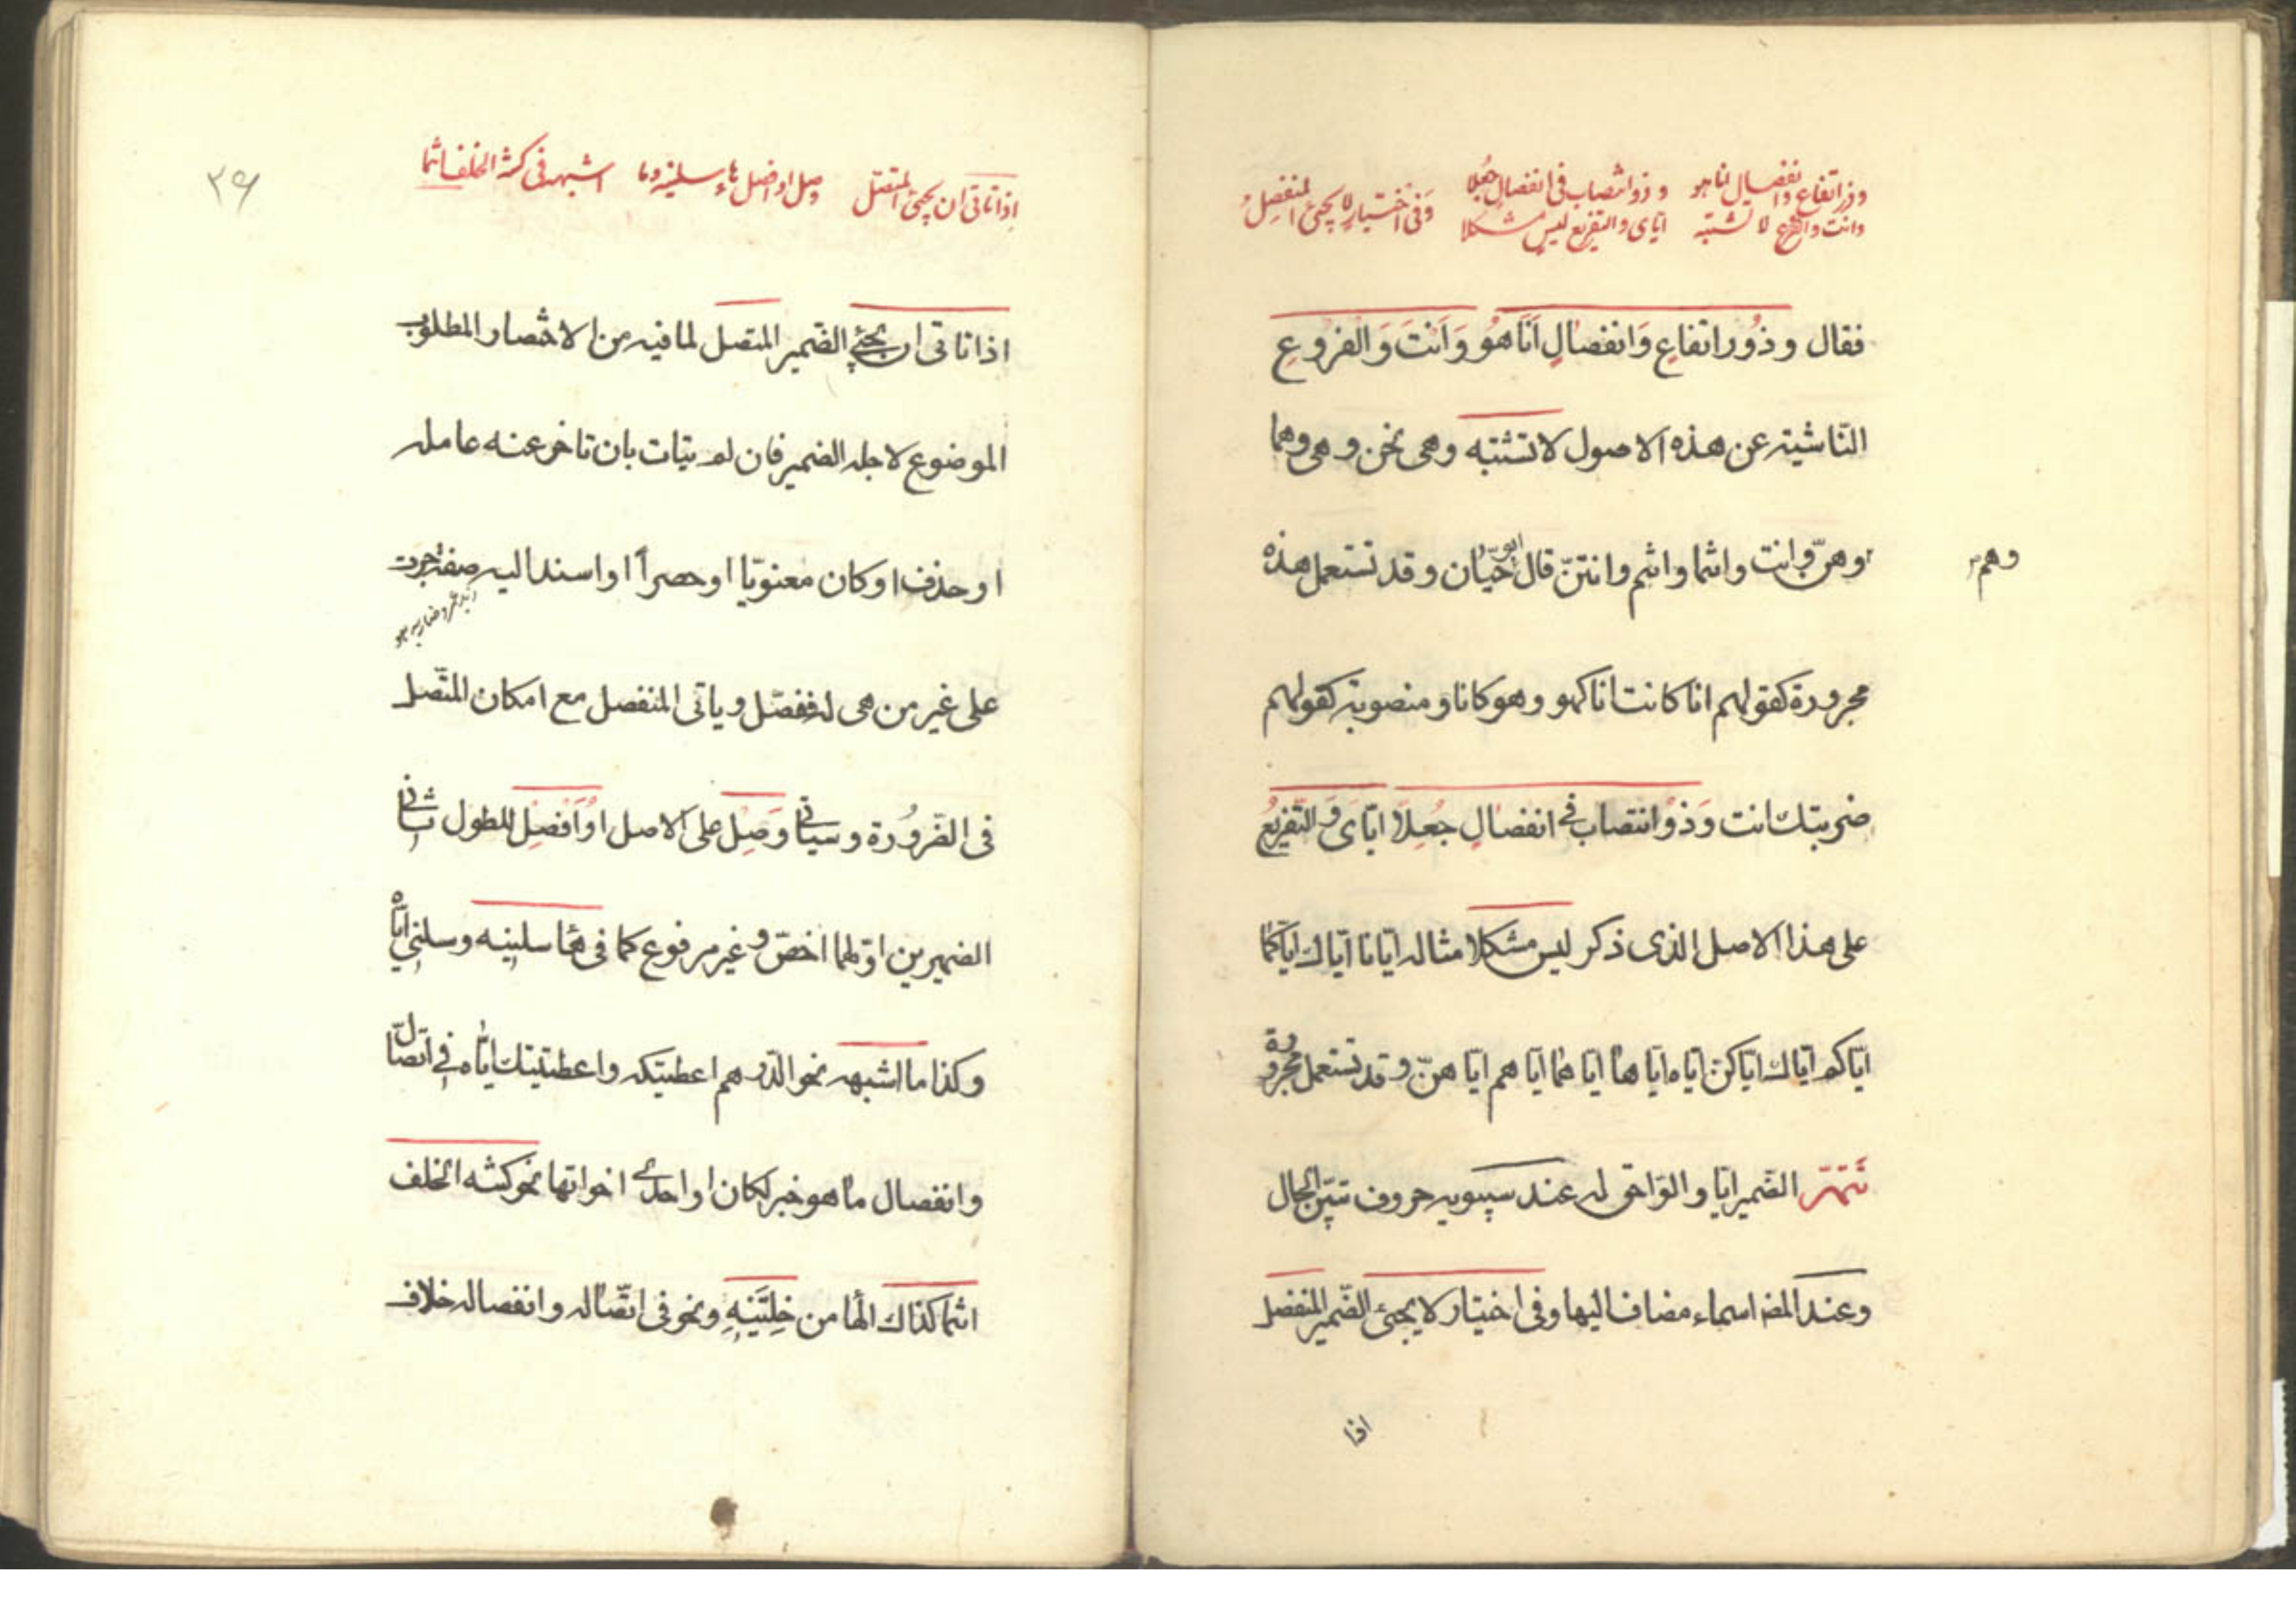 وذو ارتفاع وانفصال انا هو
وانت والفروع لا تشتبه
وذو انتصاب في انفصال جعلا
اياي والتفريع ليس مشكلا
وفي اختيار لا يجيئ المنفصل
فقال وذُو ارتفاعٍ وَانفصالٍ اَنَا هُو وَاَنتَ وَالفروعِ
النّاشية عن هذه الاصول لا تشتبه وهي نحن وهي وهما
وهنّ وانت وانتما وانتم وانتنّ قال ابو حيّان وقد تستعمل هذه
وهم
مجرورة كقولهم انا كانت انا كهو وهو كانا ومنصوبة كقولهم
ضربتك انت وَذوُ انتصاب في انفصالٍ جُعِلاَ ايّاىَ وَالتّفريعُ
على هذا الاصل الذى ذكر ليس مشكلا مثاله ايّانا ايّاك ايّاكما
ايّاكم ايّاك ايّاكنّ ايّاه ايّاها ايّاهما ايّاهم ايّاهنّ وقد تستعمل مجرورة
تتمّة الضّمير ايّا واللّواحق له عند سيبويه حروف تبيّن الحال
وعند المصـ اسماء مضاف اليها وفى اختيار لا يجئ الضّمير المنفصل
اذا
٢٦
اذا تاتى ان يجئ المتصل
وصل او افصل هاء سلنيه وما
اشبهه في كنته الخلف انتما
اذا تاتى ان يجئ الضّمير المتصل لما فيه من الاختصار المطلوب
الموضوع لاجله الضمير فان لم يتات بان تاخر عنه عامله
او حذف او كان معنويّا او حصراً او اسند اليه صفة جرت
على غير من هى له فصّل وياتى المنفصل مع امكان المتّصل
فى الضّروُرة وسياتى وَصِل على الاصل اوُ اَفصِل للطول ثانى
الضميرين اوّلهما اخصّ وغير مرفوع كما فى هاء سلنيه وسلنى ايّاه
وكذا ما اشبهه نحو الدّرهم اعطيتكه واعطيتك ايّاه في اتّصال
وانفصال ما هو خبر لكان او احدى اخواتها نحو كنته الخلف
انتما كذاك الهاء من خِلتَنيهِ ونحو فى اتّصاله وانفصاله خلاف